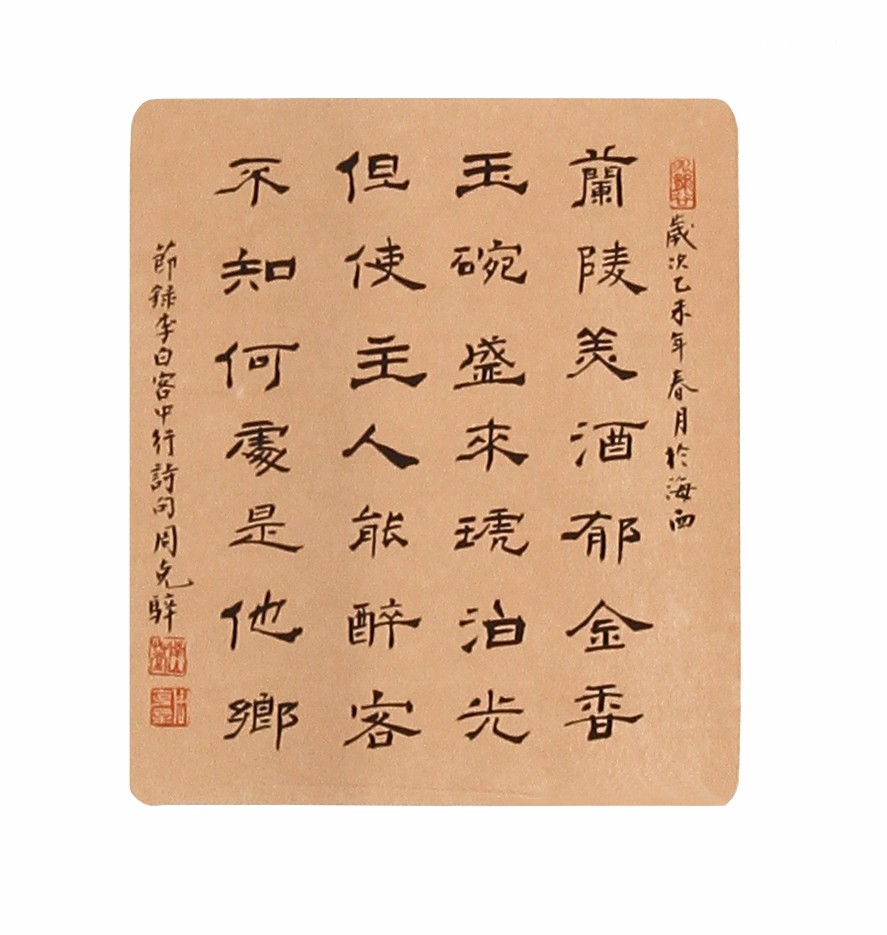 歲次乙未年春月於海西
蘭陵美酒郁金香
玉碗盛來琥泊光
但使主人能醉客
不知何處是他鄉
節録李白客中行詩句周克騂